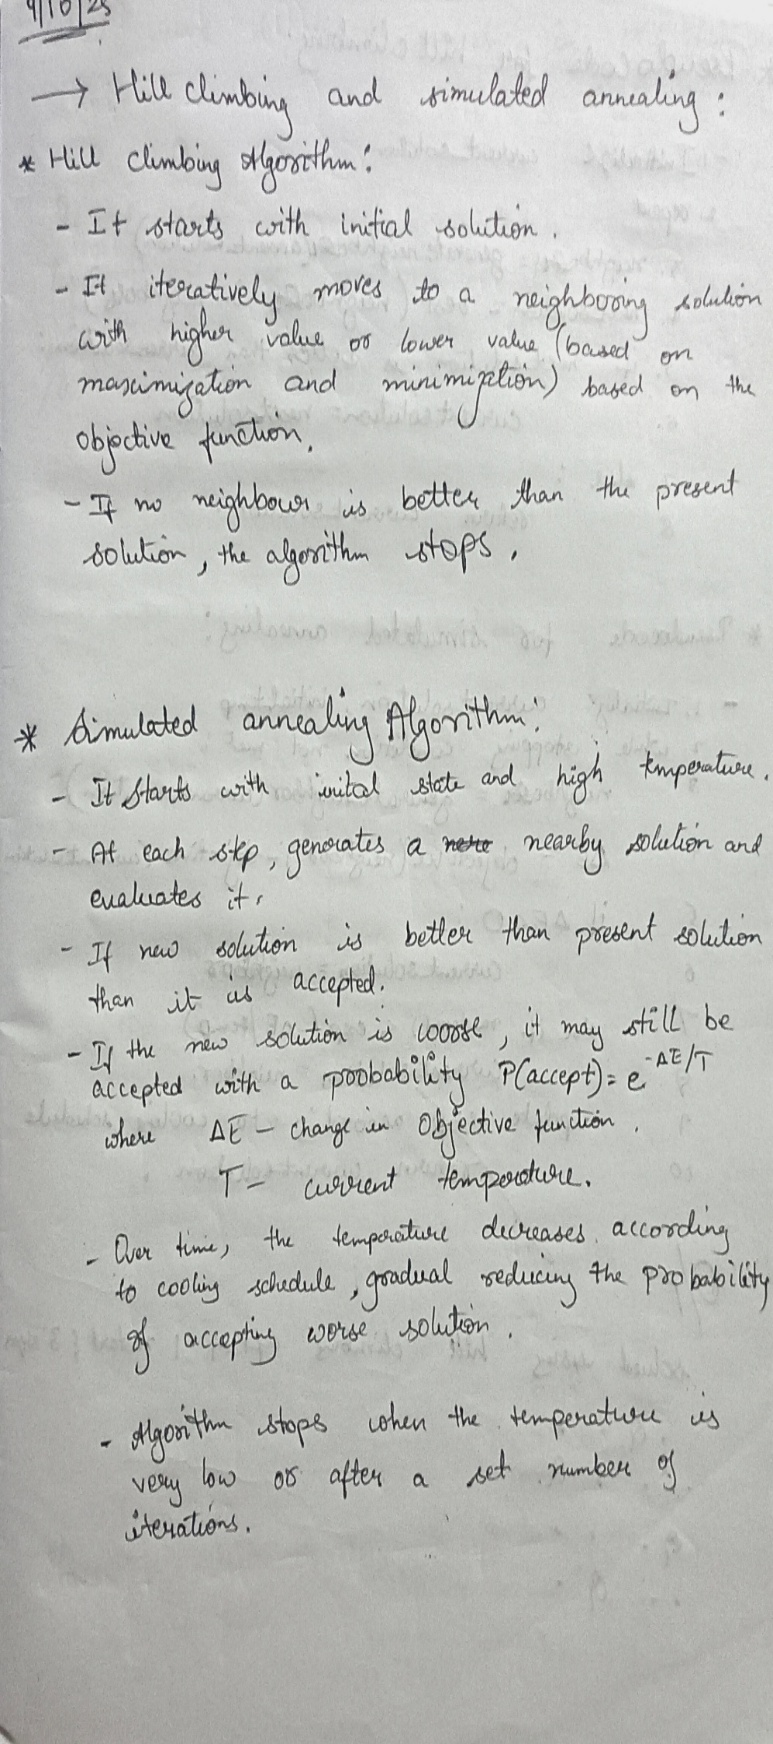 9/10/25
→ Hill climbing and simulated annealing :
* Hill climbing Algorithm :
- It starts with initial solution .
- It iteratively moves to a neighboring solution
with higher value or lower value (based on
maximization and minimization) based on the
objective function.
- If no neighbour is better than the present
solution, the algorithm stops .
* Simulated annealing Algorithm :
- It starts with inital state and high tmperature.
- At each step, generates a nearby solution and
evaluates it.
- If new solution is better than present solution
than it is accepted.
- If the new solution is woose, it may still be
accepted with a probability P(accept) = e^-ΔE/T
where ΔE - change in Objective function .
T - current temperature.
- Over time, the temperature decreases according
to cooling schedule, gradual reducing the probability
of accepting worse solution .
- Algorithm stops when the temperature is
very low or after a set number of
iterations.